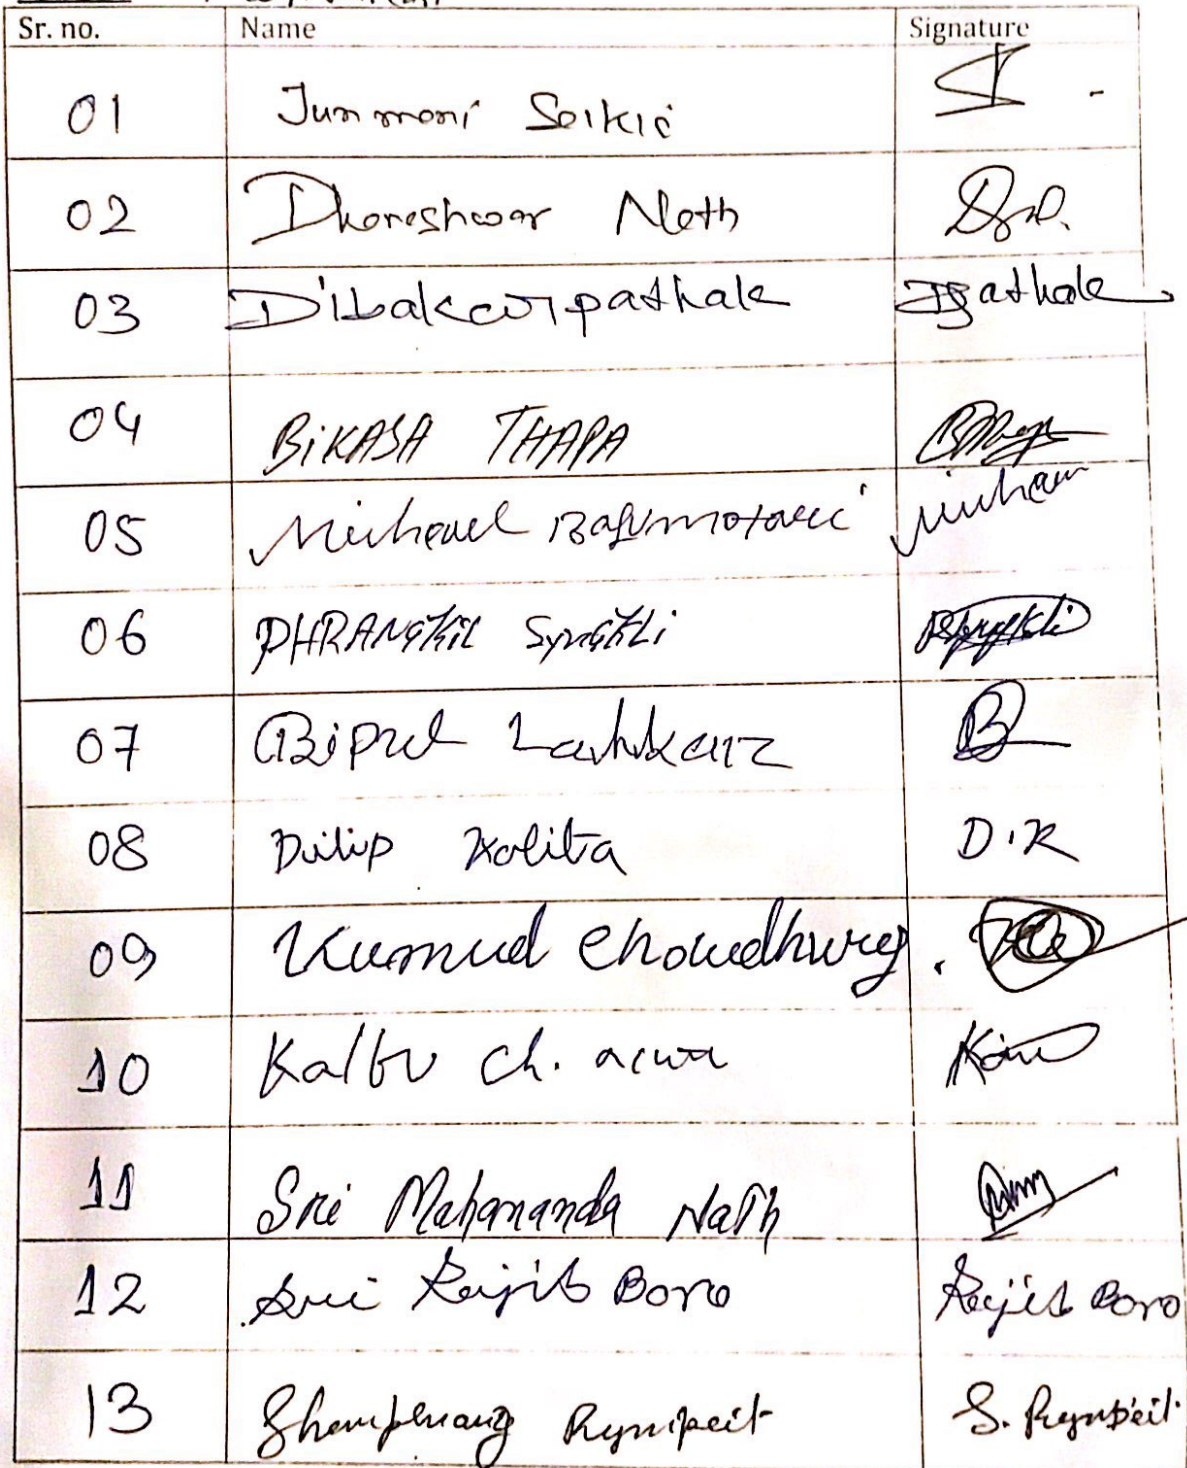 Sr. no. Name Signature
01 Junmoni Saikia
02 Dhoreshwar Nath
03 Dibakar pathak pathak
04 BIKASA THAPA
05 Micheal Basumatari
06 PHRANGKIL Syngkli
07 Bipul Lahkar B
08 Dilip Kalita D.K
09 Kumud Choudhury.
10 Kalbu Ch.
11 Sri Mahananda Nath
12 Sri Rajib Boro Rajib Boro
13 Rympeit S. Rympeit